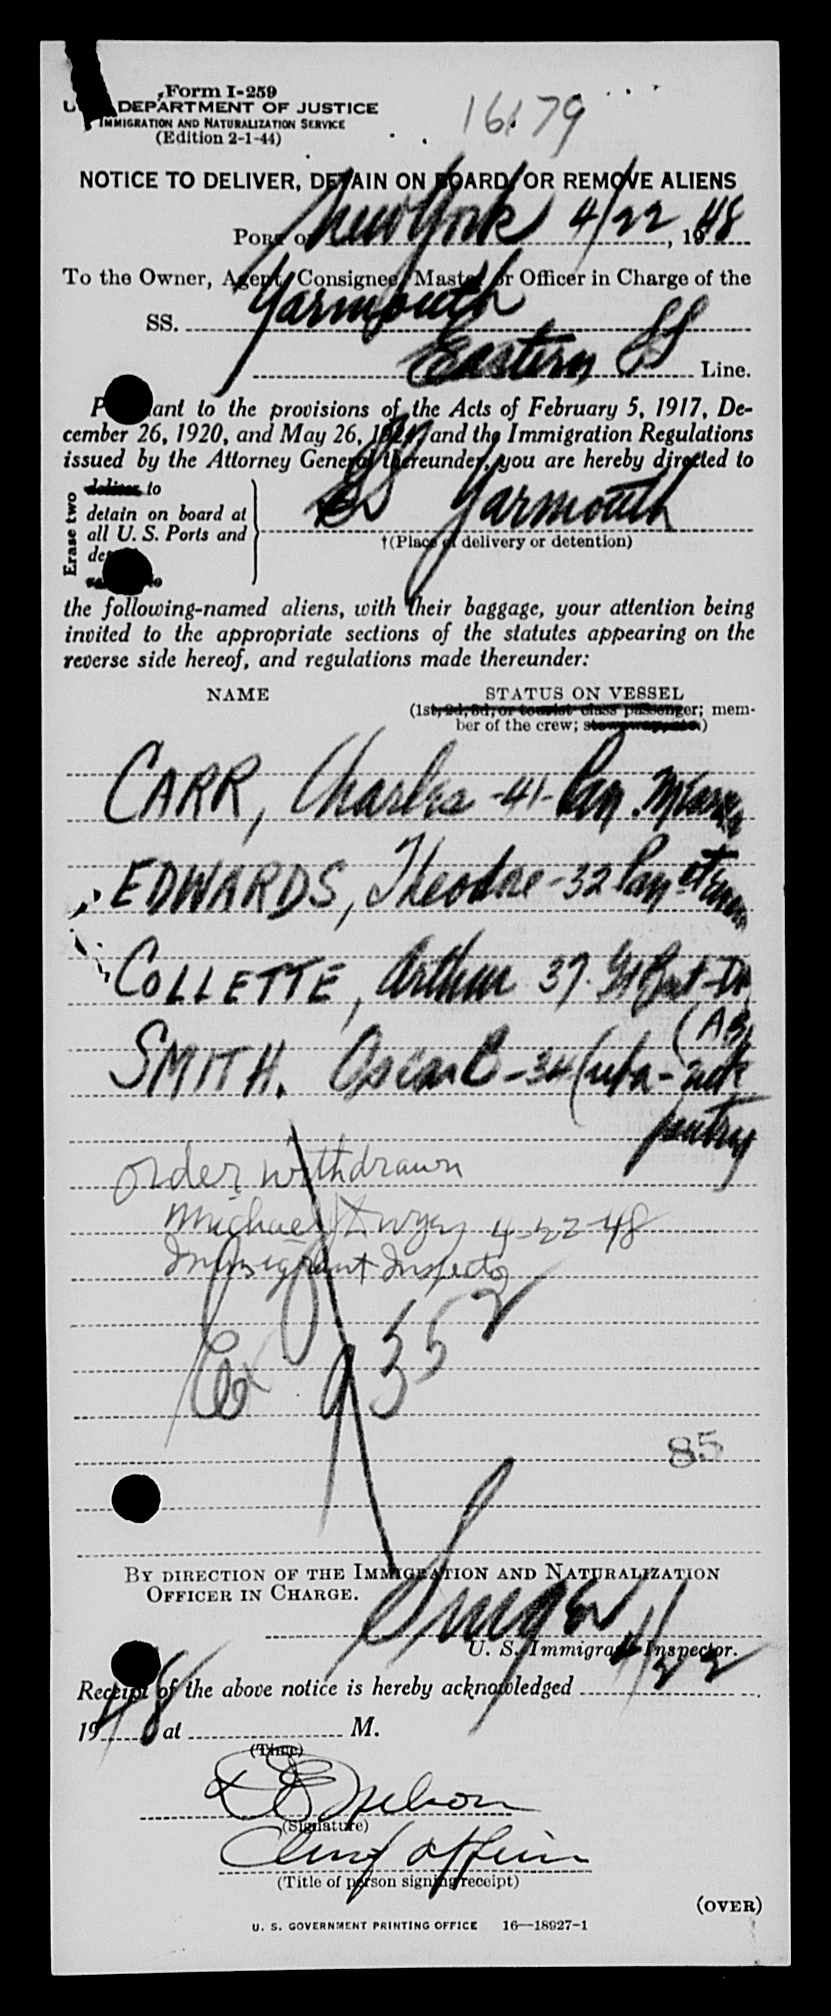 Form I-259
DEPARTMENT OF JUSTICE
IMMIGRATION AND NATURALIZATION SERVICE
(Edition 2-1-44)
16179
NOTICE TO DELIVER, DETAIN ON BOARD, OR REMOVE ALIENS
Port of New York 4/22, 1948
To the Owner, Agent, Consignee, Master or Officer in Charge of the
SS. Yarmouth
Eastern SS Line.
Pursuant to the provisions of the Acts of February 5, 1917, De-
cember 26, 1920, and May 26, 1924, and the Immigration Regulations
issued by the Attorney General thereunder, you are hereby directed to
Erase two
deliver to
detain on board at
all U. S. Ports and
SS Yarmouth
†(Place of delivery or detention)
the following-named aliens, with their baggage, your attention being
invited to the appropriate sections of the statutes appearing on the
reverse side hereof, and regulations made thereunder:
NAME STATUS ON VESSEL
(1st, 2d, 3d, or tourist class passenger; mem-
ber of the crew; stowaway, etc.)
CARR, Charles -41- Pan.
EDWARDS, Theodore -32 Pan
COLLETTE, Arthur 37.
(AB)
SMITH. Oscar C -34 Cuba -
pantry
Order withdrawn
Michael Dwyer 4-22-48
Immigrant Inspector
935
85
BY DIRECTION OF THE IMMIGRATION AND NATURALIZATION
OFFICER IN CHARGE.
U. S. Immigrant Inspector.
Receipt of the above notice is hereby acknowledged 4/22
1948 at M.
(Time)
Nelson
(Signature)
Chief Officer
(Title of person signing receipt)
(OVER)
U. S. GOVERNMENT PRINTING OFFICE 16—18927-1